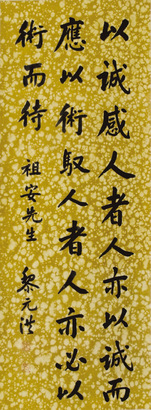 以誠感人者人亦以誠而
應以術馭人者人亦必以
術而待
祖安先生
黎元洪